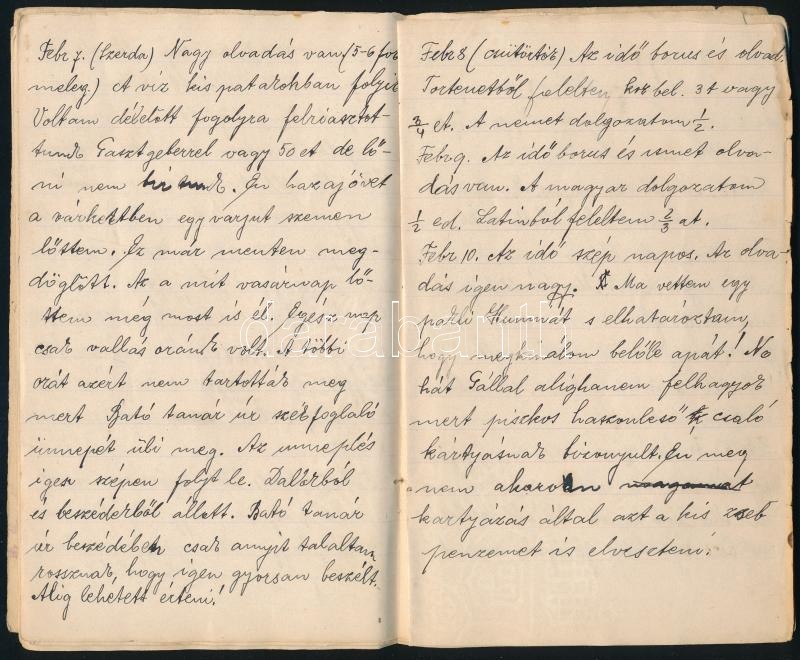 Febr 7. (Szerda) Nagy olvadás van (5-6 fok
meleg.) A víz kis patakokban folyik
Voltam délelőtt fogolyra felriasztot-
tunk Gasztgeberrel vagy 50et de lő-
ni nem birtunk. Én hazajövet
a várkertben egy varjut szemen
lőttem. Ez már menten meg-
döglött. Az a mit vasárnap lő-
ttem még most is él. Egész nap
csak vallás óránk volt. A többi
órát azért nem tartották meg
mert Bató tanár úr székfoglaló
ünnepét üli meg. Az unneplés
igen szépen folyt le. Dalokból
és beszédekből állott. Bató tanár
úr beszédében csak annyit találtam
rossznak, hogy igen gyorsan beszélt.
Alig lehetett érteni!
Febr 8 (csütörtök) Az idő borus és olvad.
Történetből feleltem bel. 3t vagy
3/4 et. A német dolgozatom 1/2.
Febr 9. Az idő borus és ismét olva-
dás van. A magyar dolgozatom
1/2 ed. Latinból feleltem 2/3 at.
Febr 10. Az idő szép napos. Az olva-
dás igen nagy. Ma vettem egy
pakli Hunniát s elhatároztam,
hogy megkinálom belőle apát! No
hát Gállal alighanem felhagyok
mert piszkos haszonleső csaló
kártyásnak bizonyult. Én meg
nem akarom
kartyázás által azt a kis zseb
penzemet is elveszteni.
darabanth